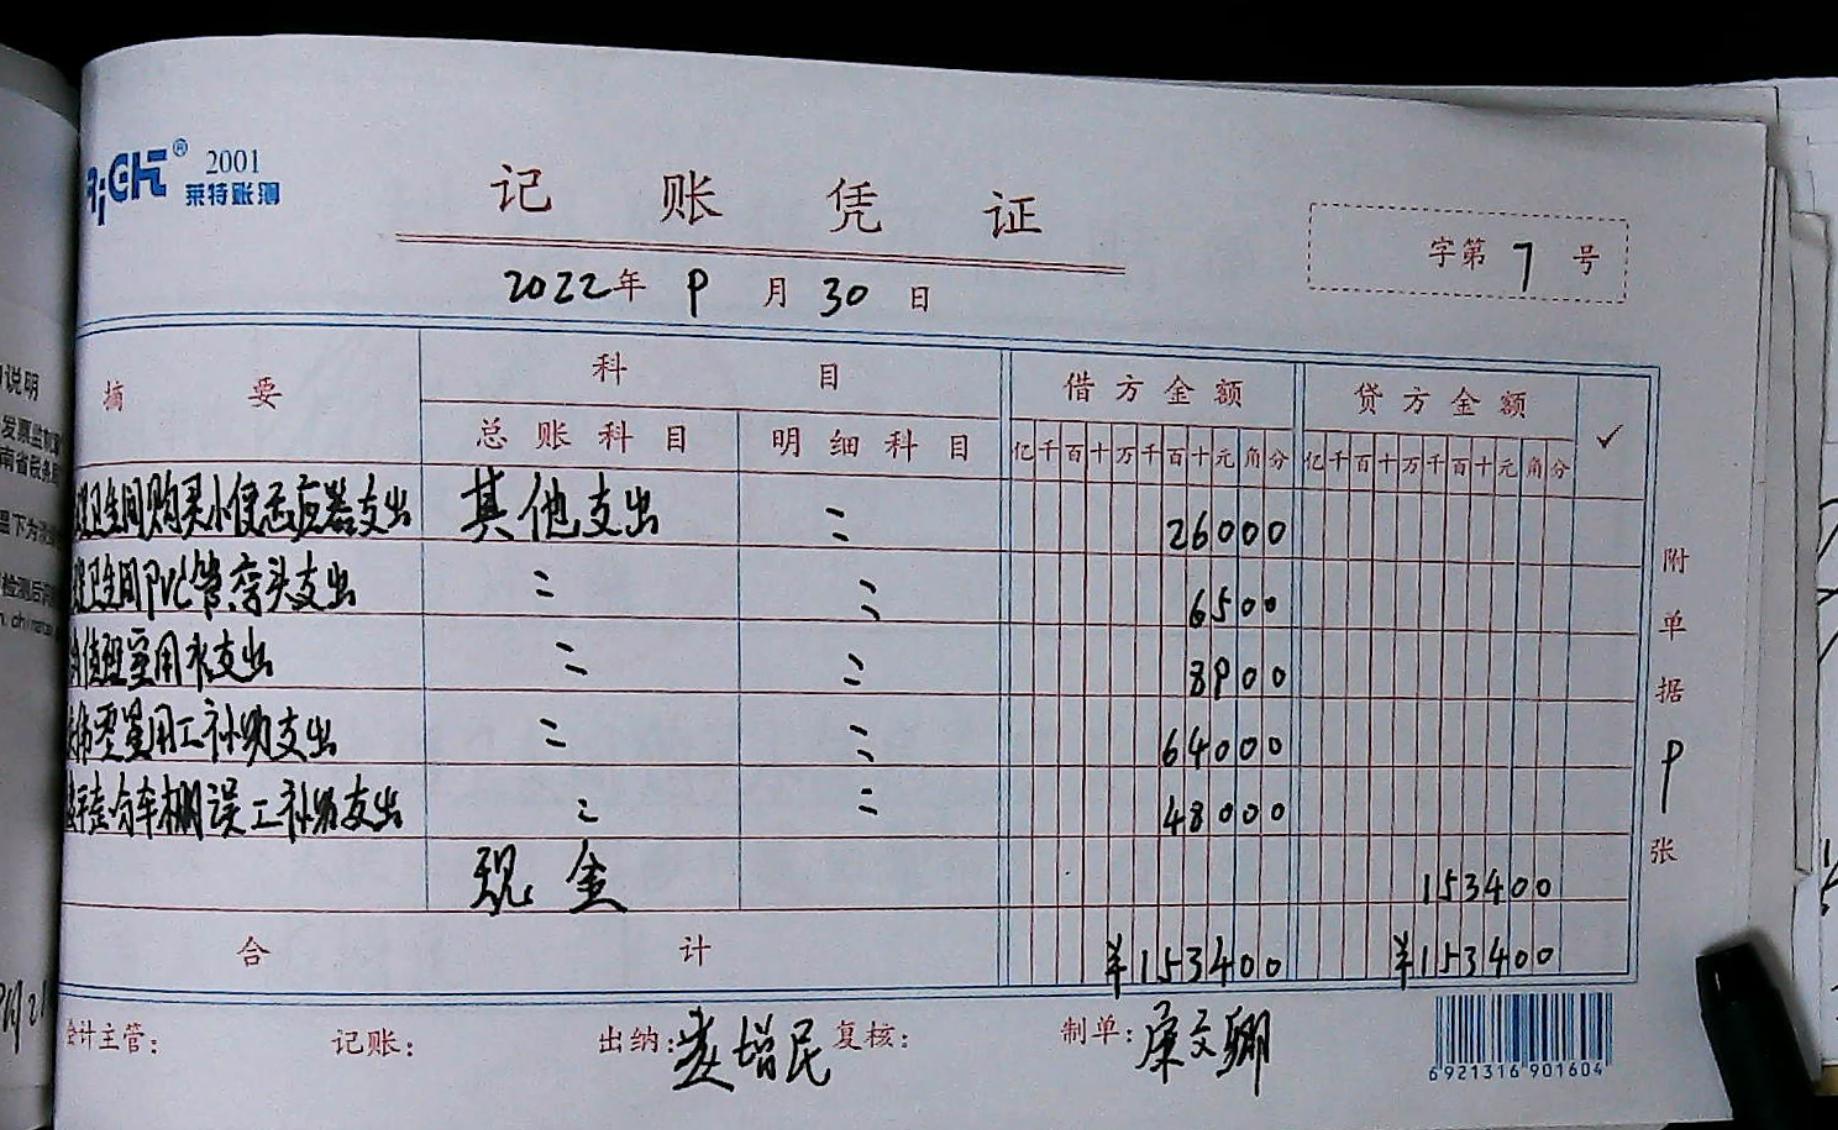 RiCH® 2001
莱特账簿
记 账 凭 证
字第 7 号
2022年 9 月 30 日
摘 要 科 目 借方金额 贷方金额 ✓
总账科目 明细科目 亿千百十万千百十元角分 亿千百十万千百十元角分
卫生间购买小便感应器支出 其他支出 〃 26000
卫生间PVC管弯头支出 〃 〃 6500
值班室用水支出 〃 〃 8900
用工补助支出 〃 〃 64000
车棚误工补助支出 〃 〃 48000
现金 153400
合 计 ¥153400 ¥153400
附单据 9 张
会计主管: 记账: 出纳: 增民 复核: 制单: 文
6921316901604
说明
发票监制
南省税务局
温下为
检测后